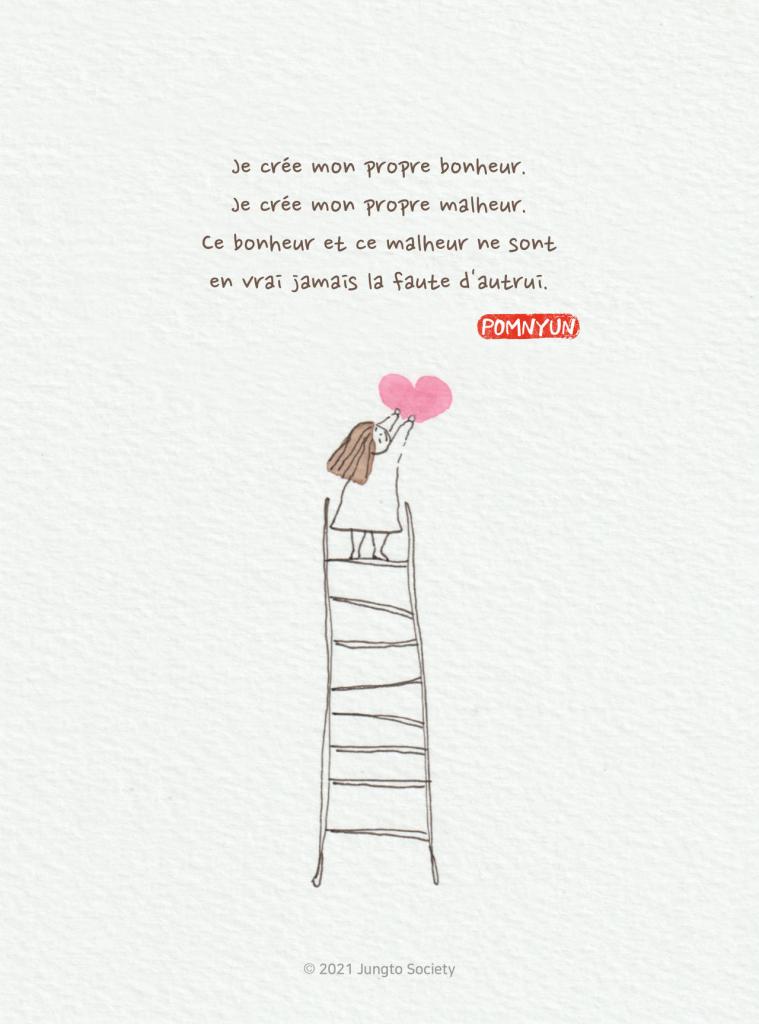 Je crée mon propre bonheur.
Je crée mon propre malheur.
Ce bonheur et ce malheur ne sont
en vrai jamais la faute d'autrui.
POMNYUN
© 2021 Jungto Society